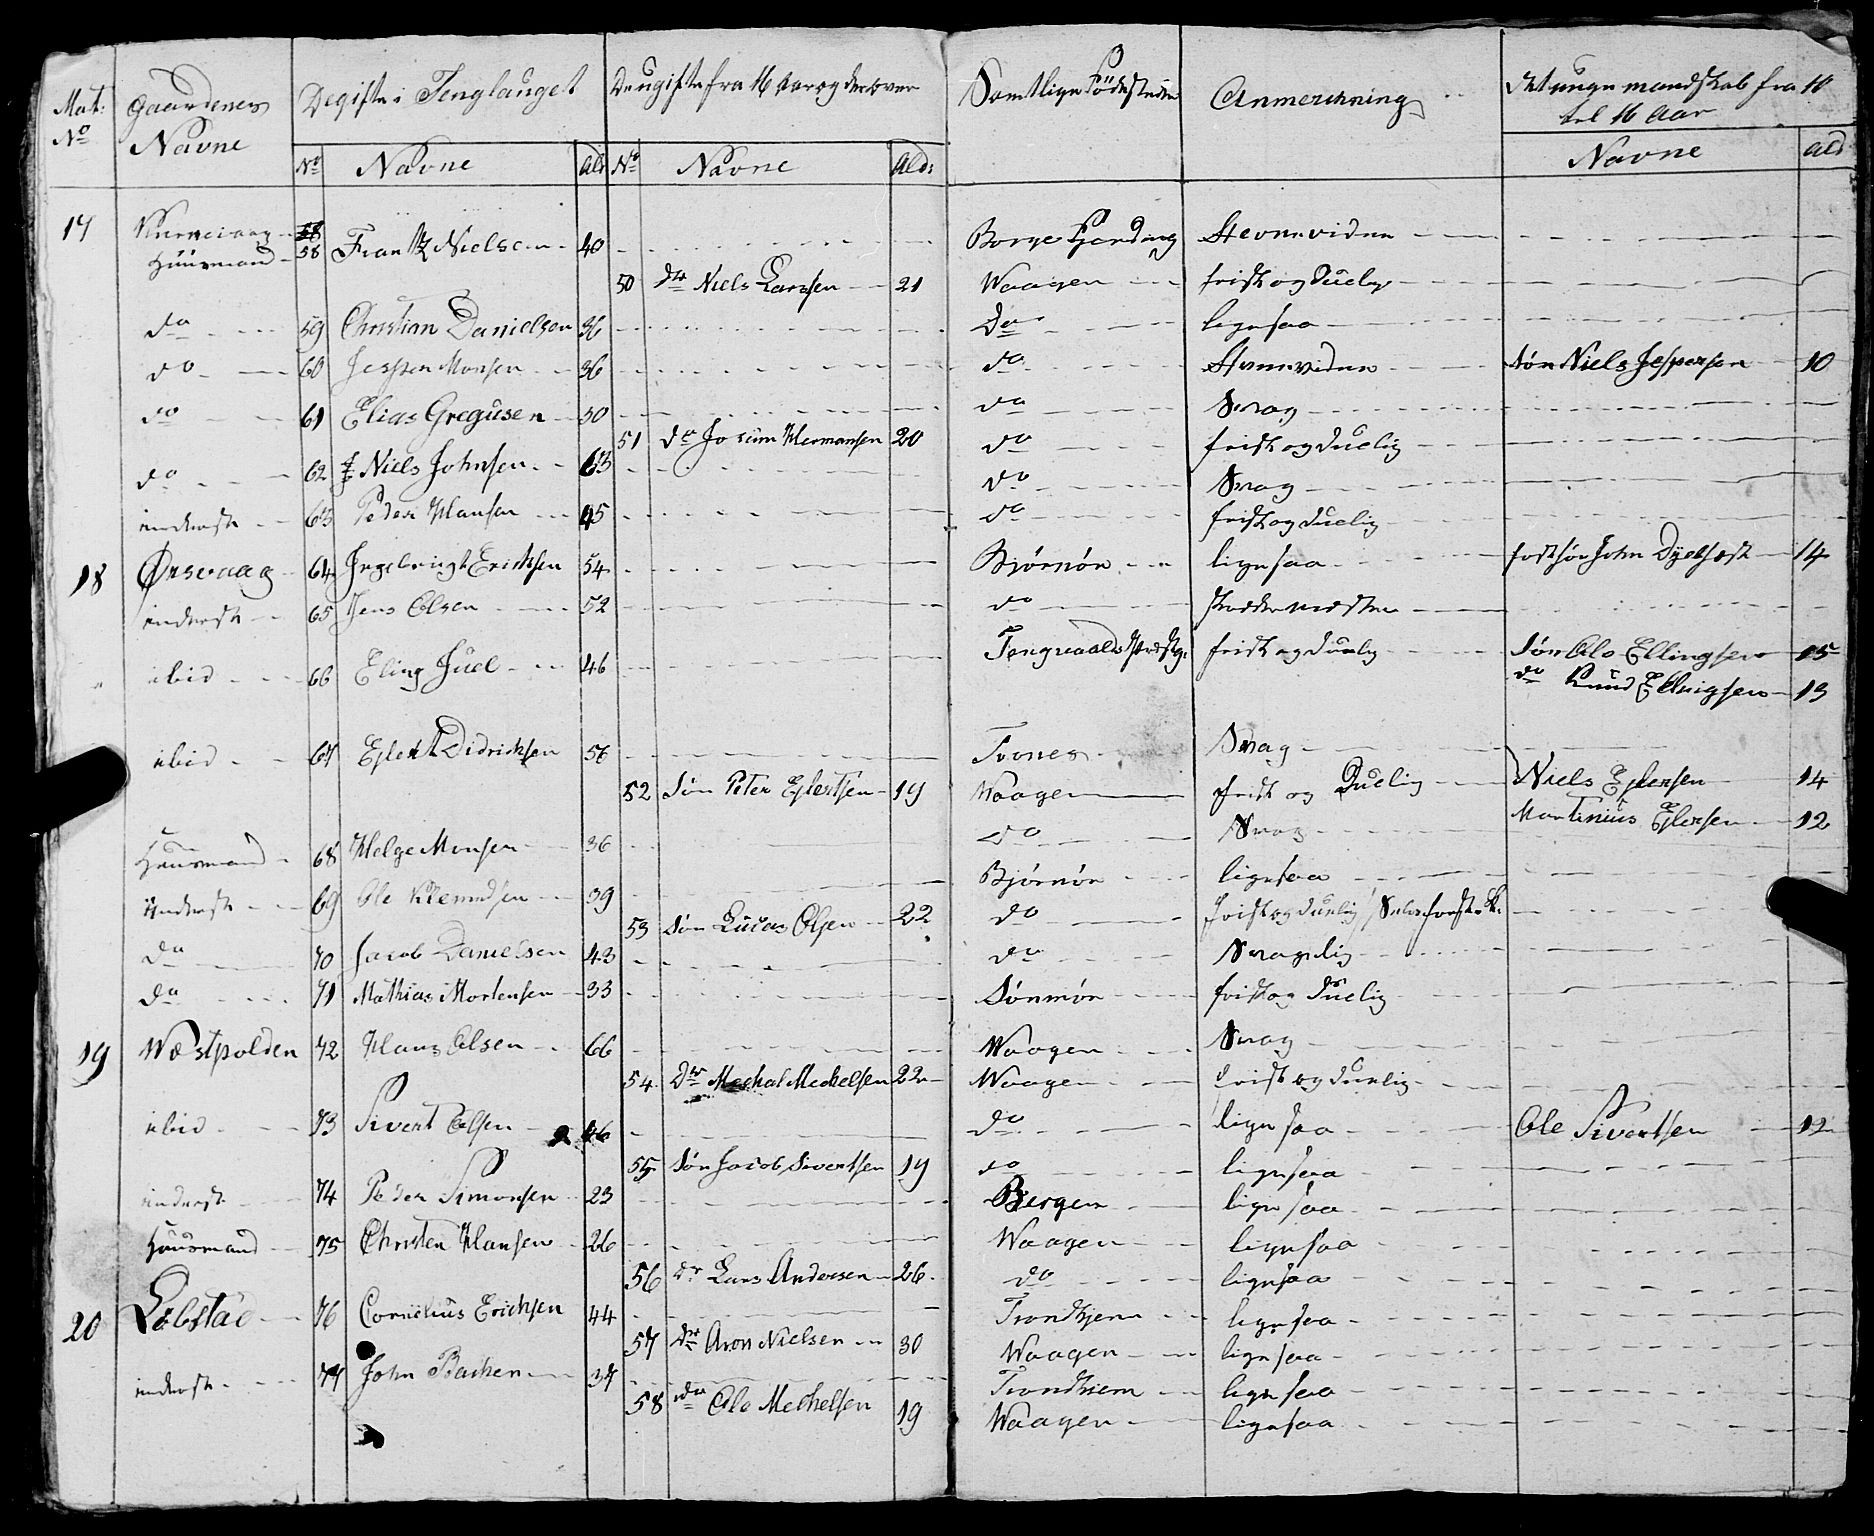 Mat: No | Gaardenes Navne | De gifte i Tenglauget | De ugifte fra 16 Aar og derover | Samtlige Fødestæder | Anmerckning | Det unge mandskab fra 10 til 16 Aar
No | Navne | Ald | No | Navne | Ald: | Navne | Ald
17 Huusmand 58 Frantz Nielsen 40 Borge Stevnevidne
50 Niels Larssen 21 Waagen frisk og duelig
do 59 Christian Danielsen 36 Do ligesaa
do 60 Jesper Monsen 36 do Stevnevidne Søn Niels Jespersen 10
do 61 Elias Gregusen 50 do Svag
51 Jocum Hermansen 20 do frisk og duelig
do 62 Niels Johnsen 63 do Svag
inderst 63 Peder Hansen 45 do frisk og duelig
18 Ørsvaag 64 Ingebrigt Erichsen 54 Bjørnør ligesaa John 14
inderst 65 Jens Olsen 52 do
ibid 66 Eling Juel 46 frisk og duelig Søn Ole Ellingsen 15
do Knud Ellingsen 13
ibid 67 Eylert Didrichsen 56 Svag
52 Søn Peter Eylertsen 19 Waagen frisk og Duelig Niels Eylersen 14
Martinius Eylersen 12
Huusmand 68 Helge Monsen 36 do Svag
inderst 69 Ole Klemmdsen 39 Bjørnør ligesaa
53 Søn Lucas Olsen 22 do frisk og duelig
do 70 Jacob Danielsen 43 do Svagelig
do 71 Mathias Mortensen 33 Sønmør frisk og duelig
19 Wæstpolden 72 Hans Olsen 66 Waagen Svag
54 Mechal Mechelsen 22 Waagen frisk og duelig
ibid 73 Sivert Olsen 46 do ligesaa Ole Sivertsen 12
55 Søn Jacob Sivertsen 19 do ligesaa
inderst 74 Peder Simonsen 23 Bergen ligesaa
Huusmand 75 Christen Hansen 26 Waagen ligesaa
56 Lars Andersen 26 do ligesaa
20 76 Cornelius Erichsen 44 Trondhjem ligesaa
57 Aron Nielsen 30 Waagen ligesaa
inderst 77 John Backen 37 Trondhiem ligesaa
58 Ole Mechelsen 19 Waagen ligesaa